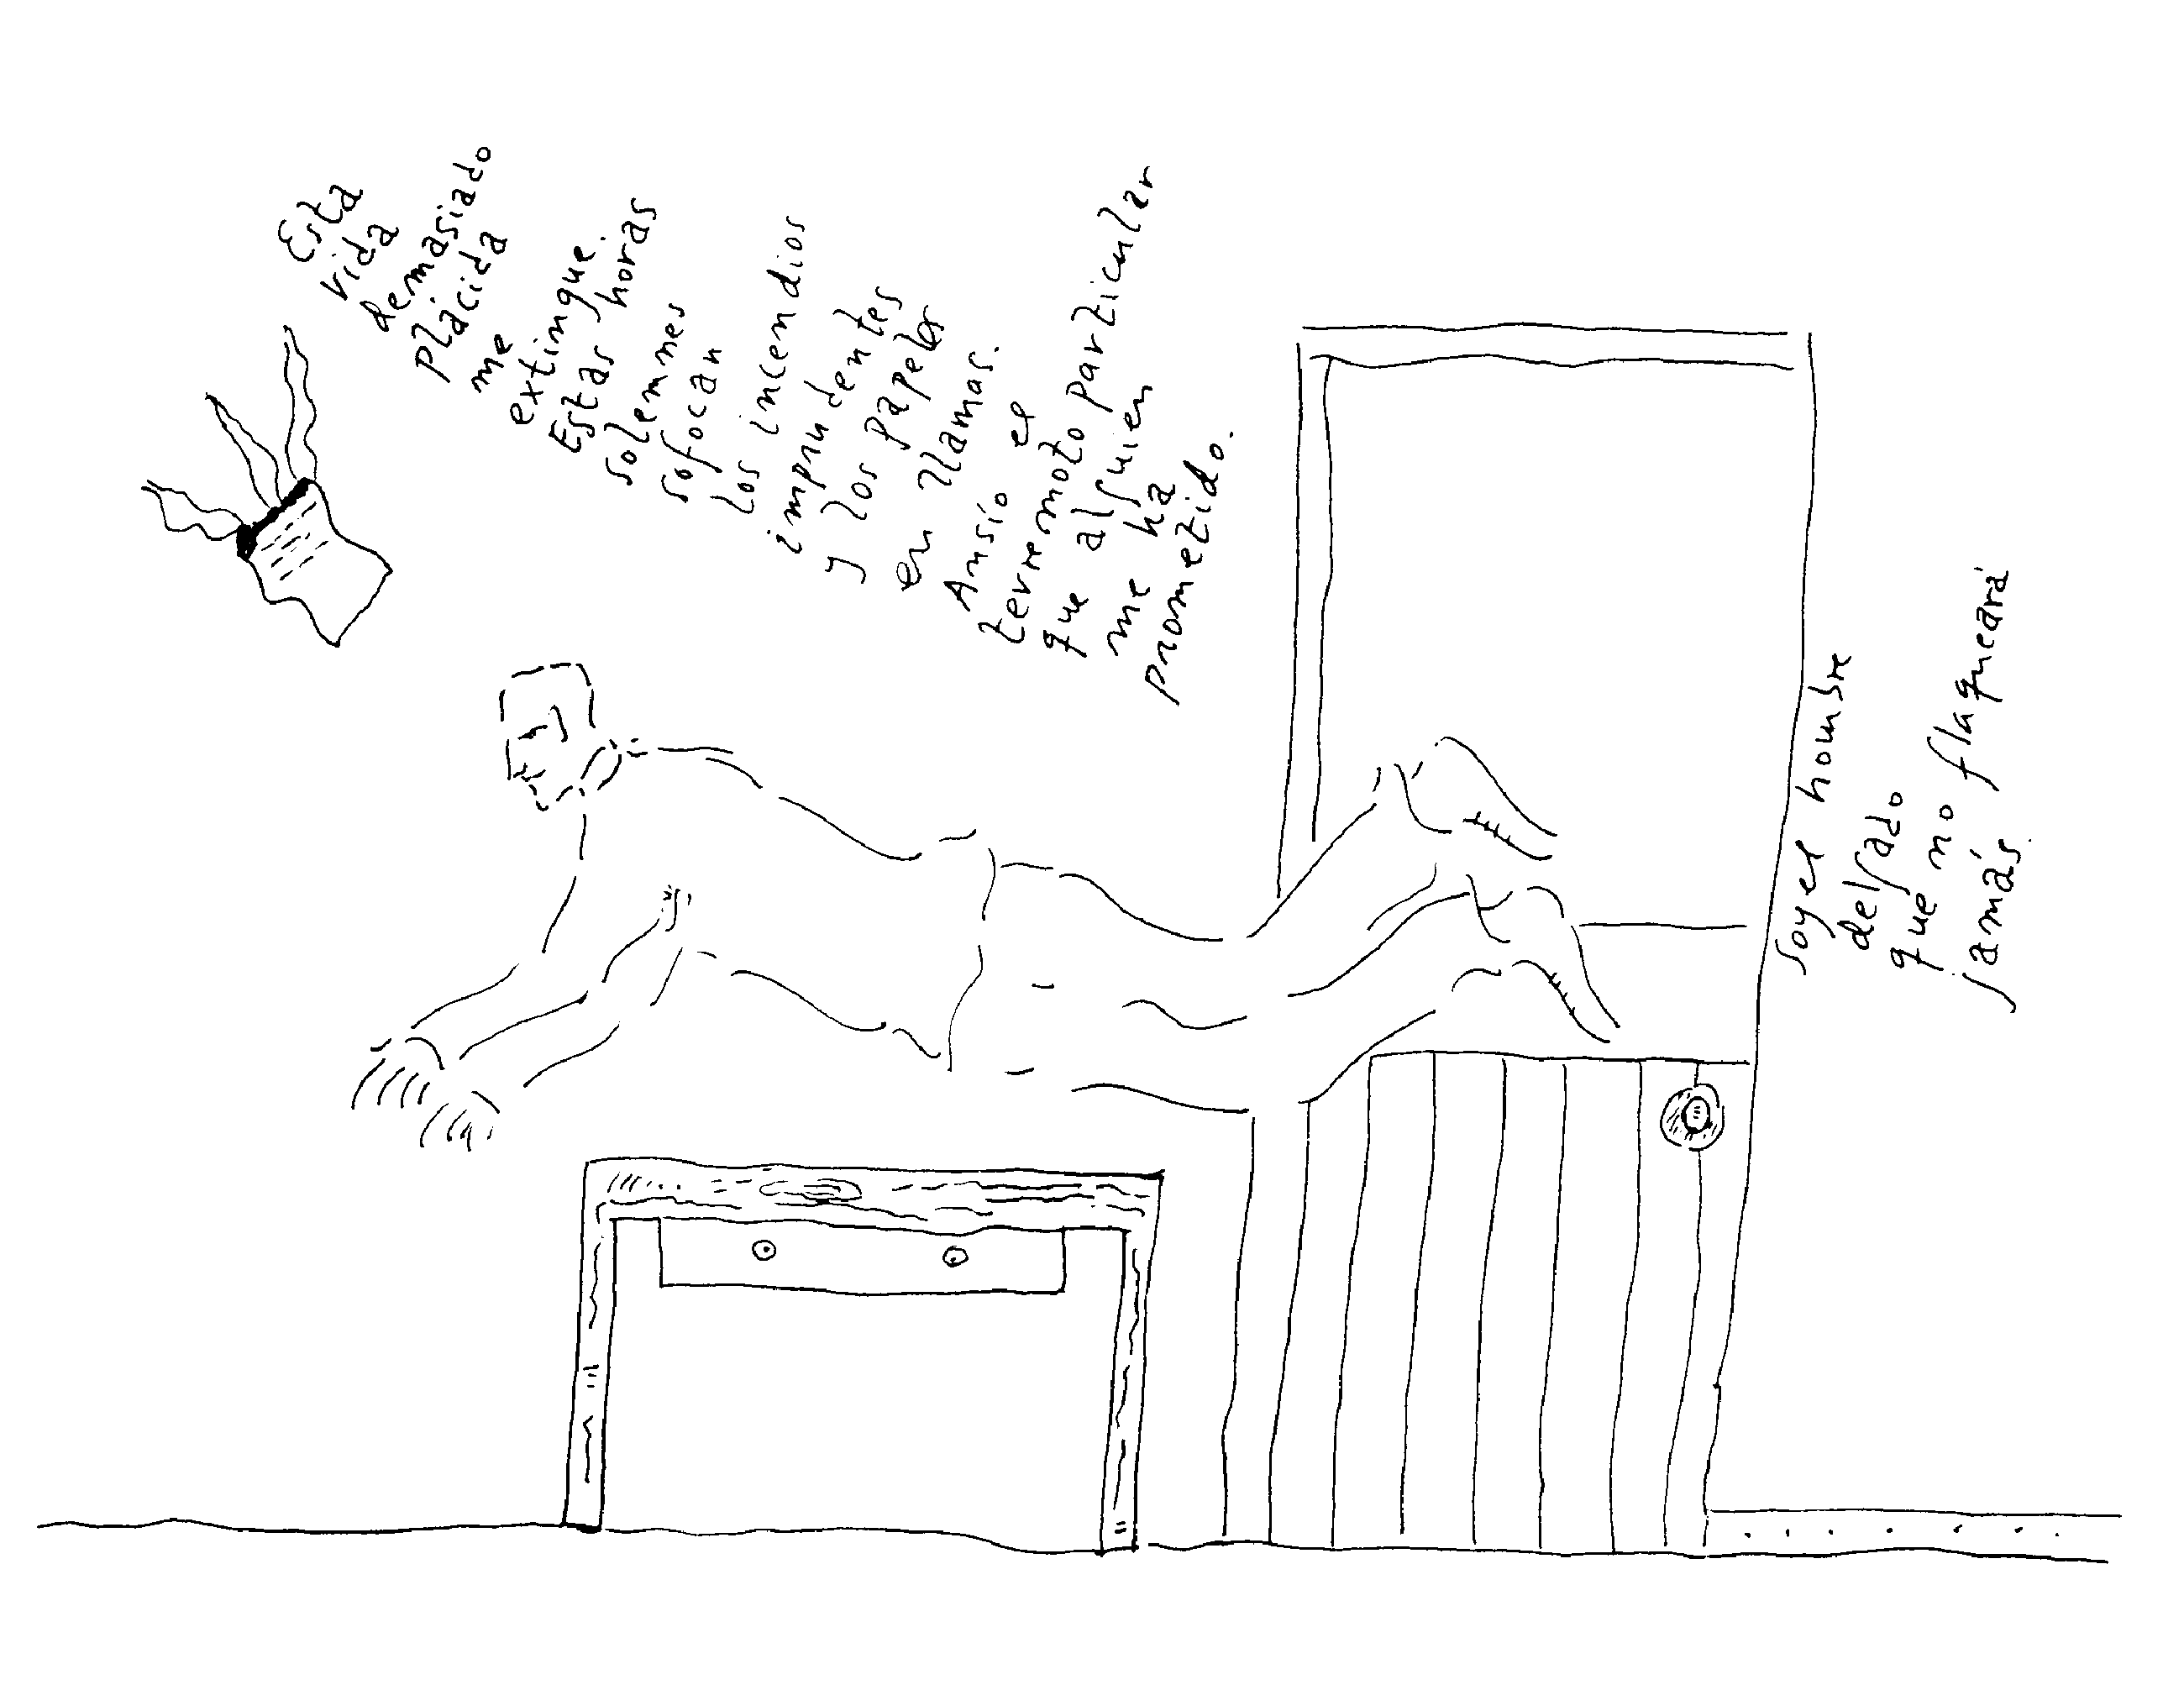 Esta
vida
demasiado
plácida
me
extingue.
Estas horas
solemnes
sofocan
los incendios
imprudentes
y los papeles
en llamas.
Ansío el
terremoto particular
que alguien
me ha
prometido.
Soy el hombre
delgado
que no flaqueará
jamás.